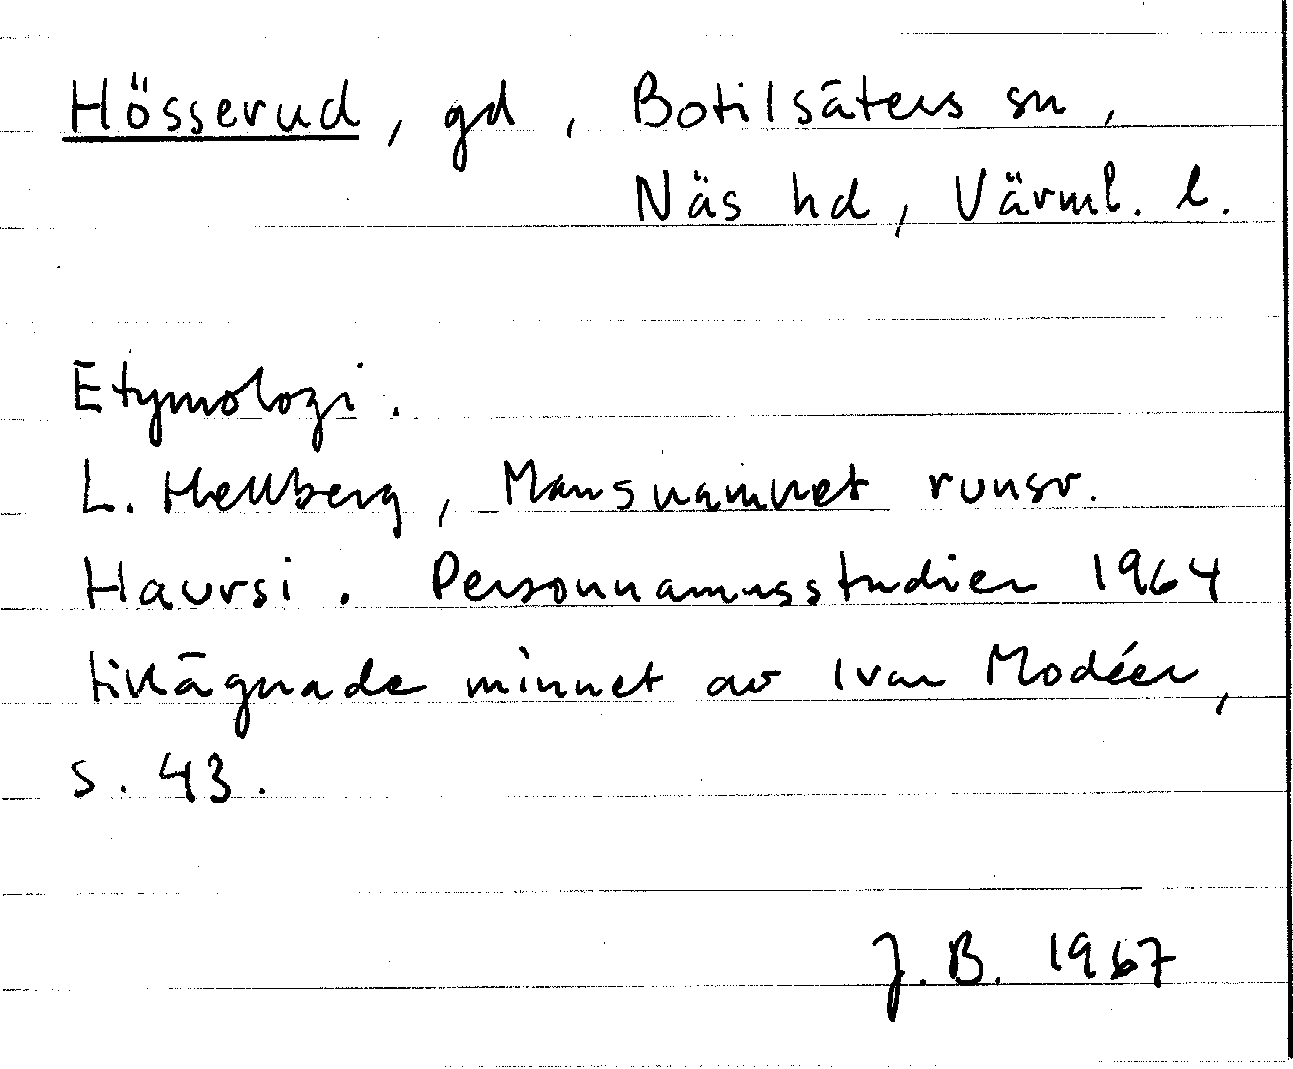 Hösserud, gd, Botilsäters sn,
Näs hd, Värml. l.
Etymologi.
L. Hellberg, Mansnamnet runsv.
Haursi. Personnamnsstudier 1964
tillägnade minnet av Ivar Modéer,
s. 43.
J. B. 1967